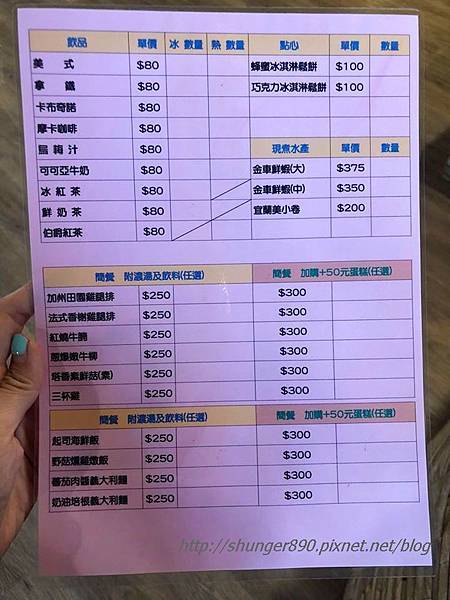 飲品 單價 冰 數量 熱 數量 點心 單價 數量
美 式 $80 蜂蜜冰淇淋鬆餅 $100
拿 鐵 $80 巧克力冰淇淋鬆餅 $100
卡布奇諾 $80
摩卡咖啡 $80
烏 梅 汁 $80 現煮水產 單價 數量
可可亞牛奶 $80 金車鮮蝦(大) $375
冰 紅 茶 $80 金車鮮蝦(中) $350
鮮 奶 茶 $80 宜蘭美小卷 $200
伯爵紅茶 $80
簡餐 附濃湯及飲料(任選) 簡餐 加購+50元蛋糕(任選)
加州田園雞腿排 $250 $300
法式香榭雞腿排 $250 $300
紅燒牛腩 $250 $300
蔥爆嫩牛柳 $250 $300
塔香素鮮菇(素) $250 $300
三杯雞 $250 $300
簡餐 附濃湯及飲料(任選) 簡餐 加購+50元蛋糕(任選)
起司海鮮飯 $250 $300
野菇燻雞燉飯 $250 $300
蕃茄肉醬義大利麵 $250 $300
奶油培根義大利麵 $250 $300
http://shunger890.pixnet.net/blog